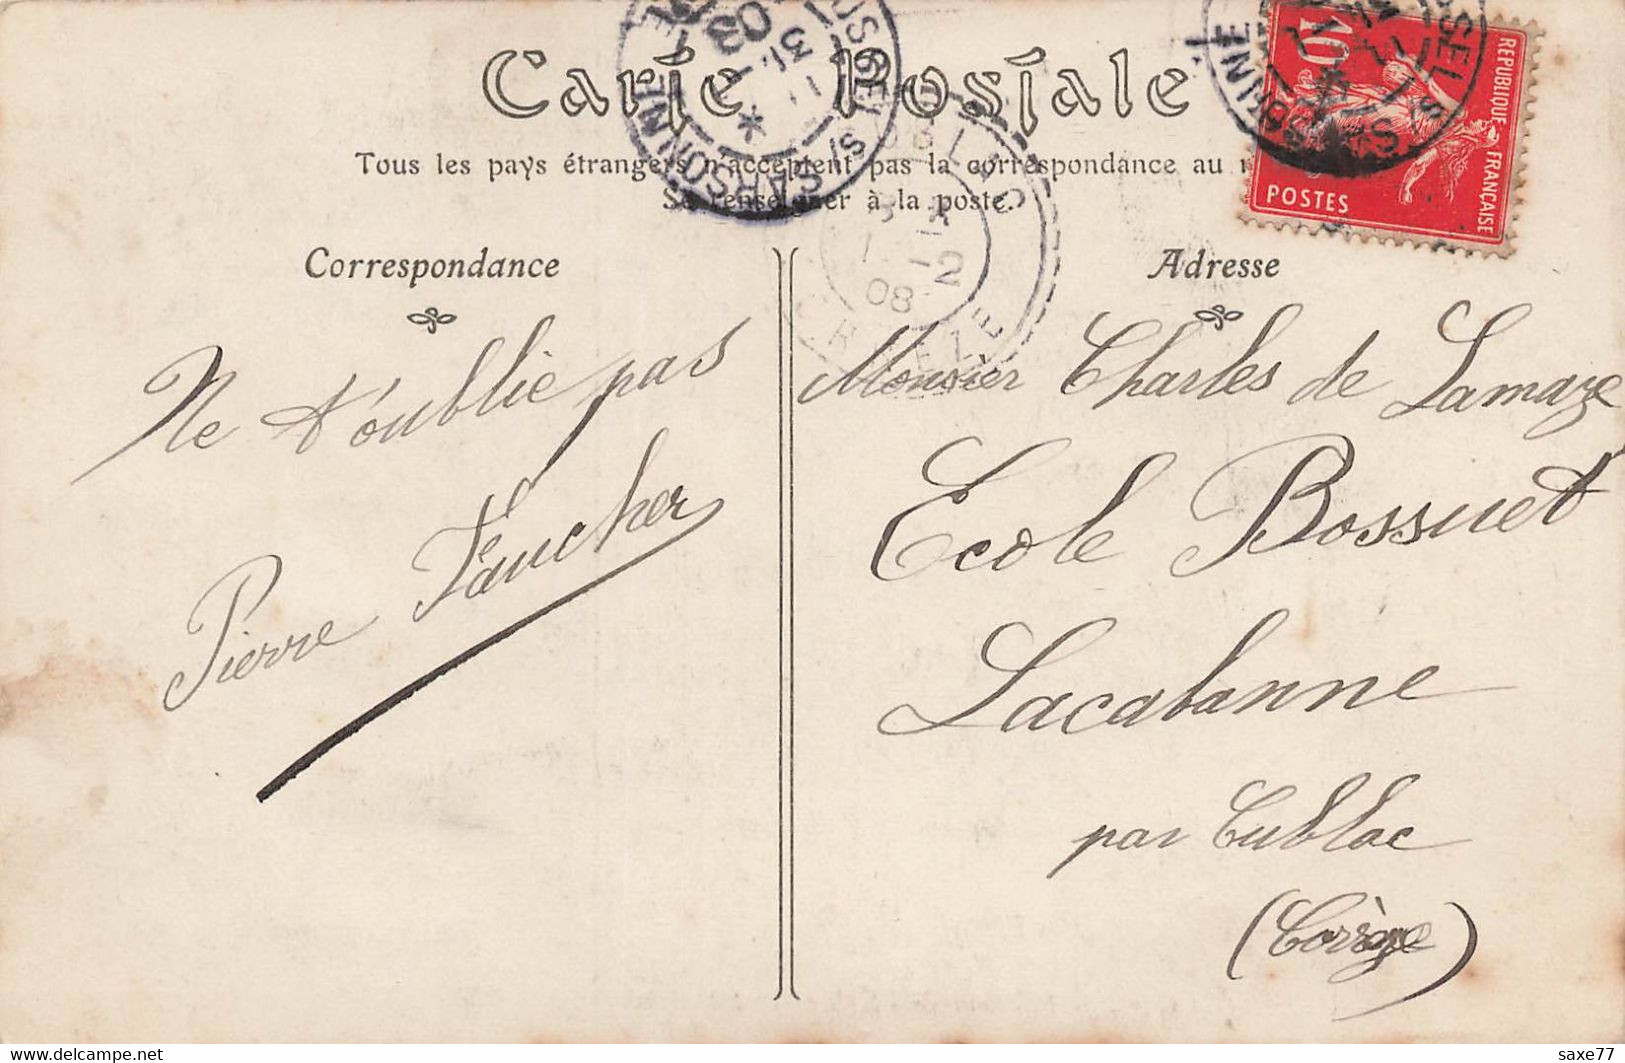 Carte Postale
Tous les pays étrangers n'acceptent pas la correspondance au
Se renseigner à la poste.
RÉPUBLIQUE FRANÇAISE
10
POSTES
31
08
S/ SARSONNE
1 -2
08
Correspondance
Adresse
Ne t'oublie pas
Pierre Faucher
Monsier Charles de Lamaze
Ecole Bossuet
Lacabanne
par Cublac
(Corrèze)
saxe77